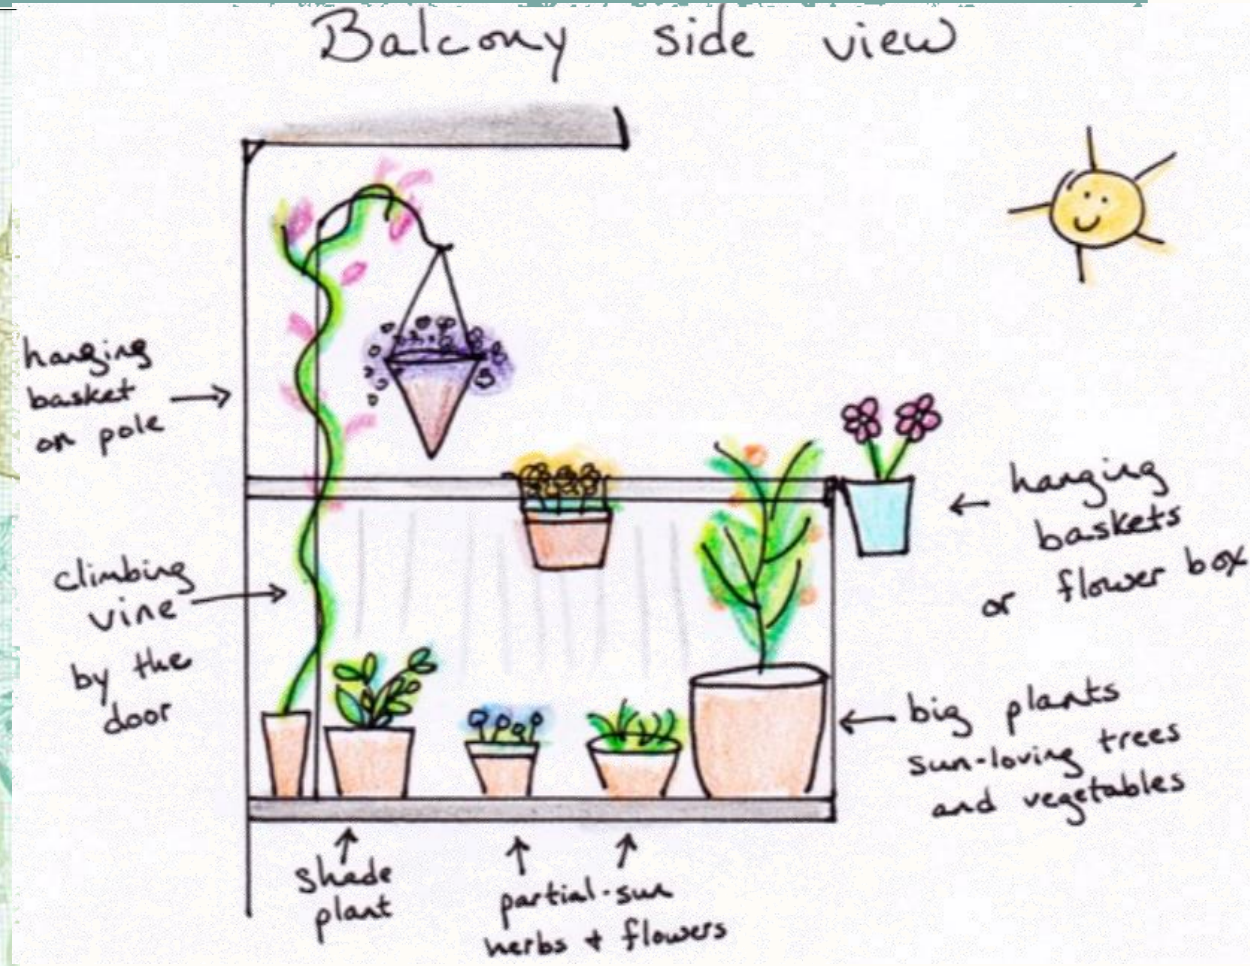 Balcony side view
hanging
basket
on pole
climbing
vine
by the
door
hanging
baskets
or flower box
big plants
sun-loving trees
and vegetables
shade
plant
partial-sun
herbs + flowers